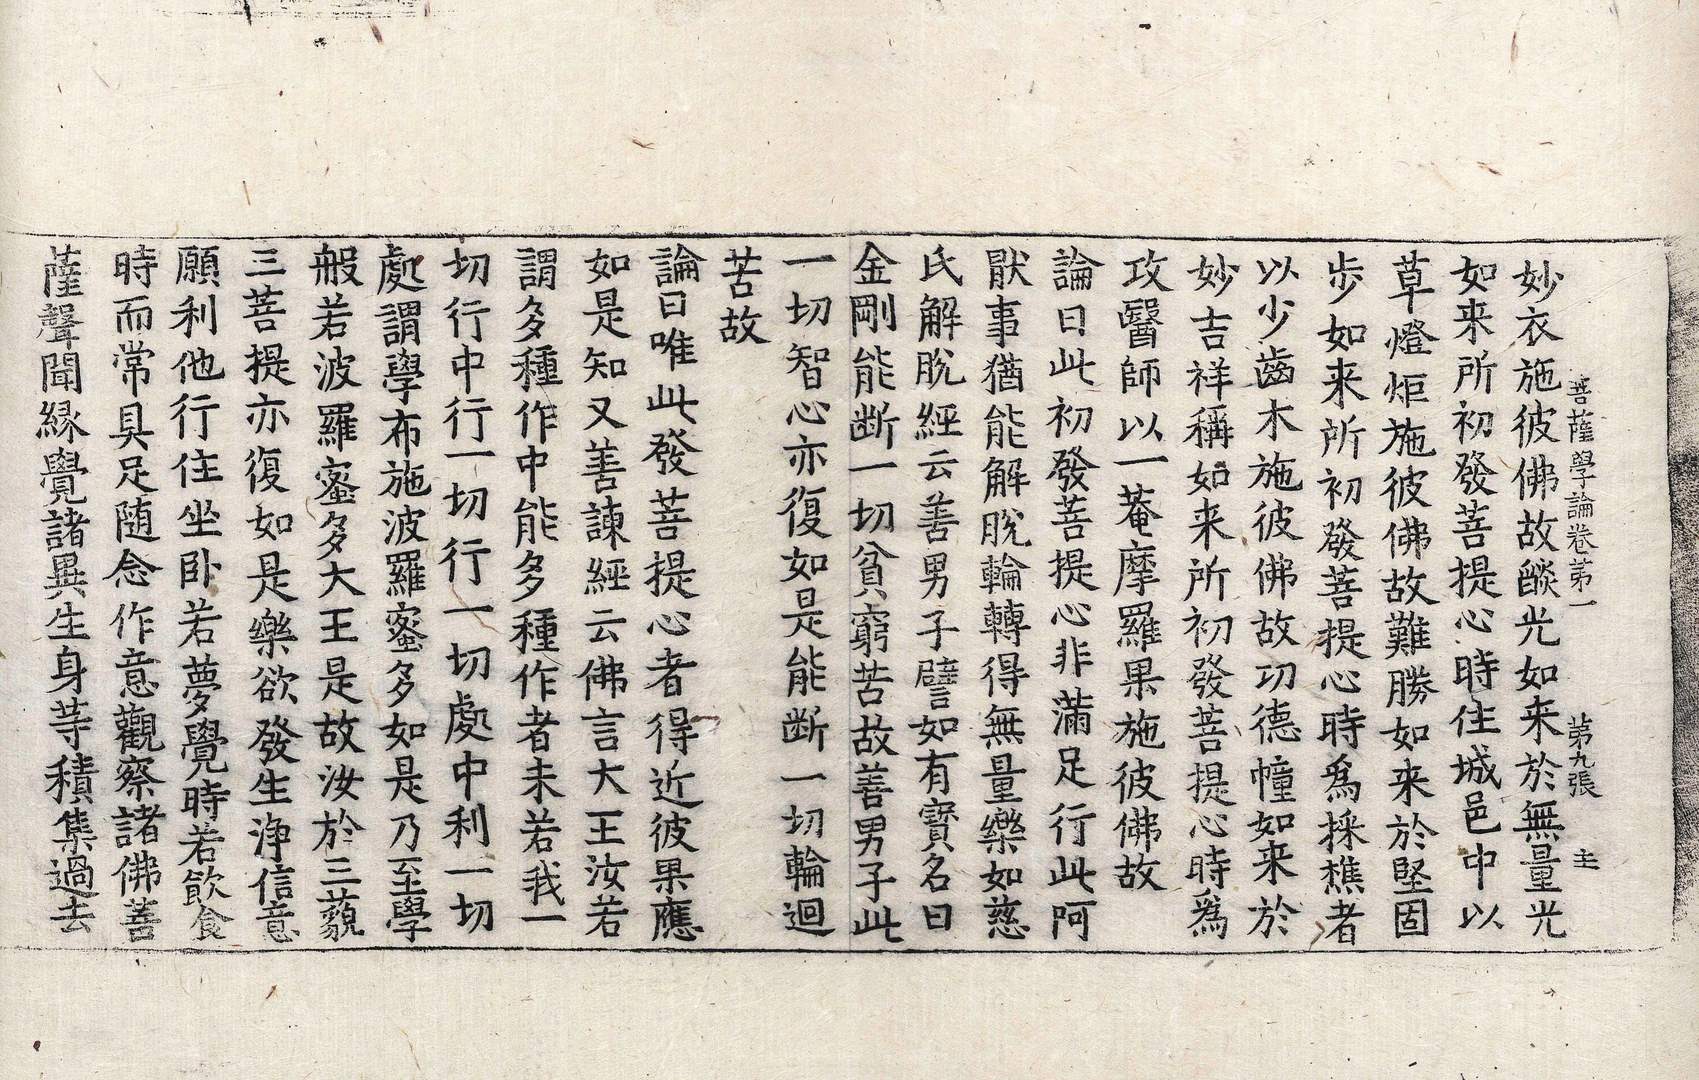 菩薩學論卷苐一　苐九張　主
妙衣施彼佛故燄光如来於無量光
如来所初發菩提心時住城邑中以
草燈炬施彼佛故難勝如来於堅固
步如来所初發菩提心時爲採樵者
以少齒木施彼佛故功德幢如来於
妙吉祥稱如来所初發菩提心時爲
攻醫師以一菴摩羅果施彼佛故
論曰此初發菩提心非滿足行此阿
猒事猶能解脫輪轉得無量樂如慈
氏解脫經云善男子譬如有寳名曰
金剛能斷一切貧窮苦故善男子此
一切智心亦復如是能断一切輪迴
苦故
論曰唯此發菩提心者得近彼果應
如是知又善諫經云佛言大王汝若
謂多種作中能多種作者未若我一
切行中行一切行一切處中利一切
處謂學布施波羅蜜多如是乃至學
般若波羅蜜多大王是故汝於三藐
三菩提亦復如是樂欲發生淨信意
願利他行住坐卧若夢覺時若飲食
時而常具足随念作意觀察諸佛菩
薩聲聞緣覺諸異生身等積集過去